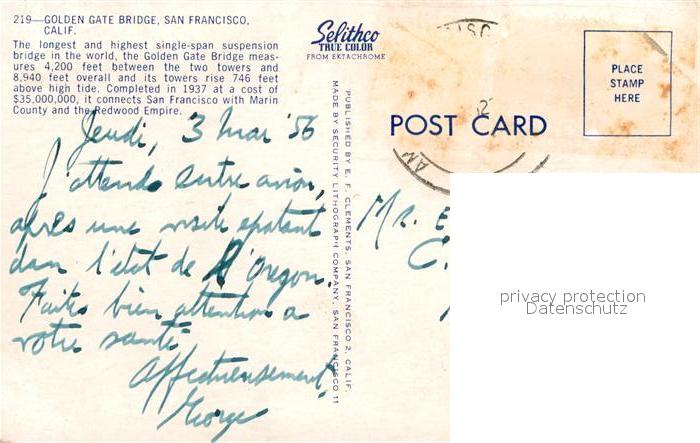 219—GOLDEN GATE BRIDGE, SAN FRANCISCO,
CALIF.
The longest and highest single-span suspension
bridge in the world, the Golden Gate Bridge meas-
ures 4,200 feet between the two towers and
8,940 feet overall and its towers rise 746 feet
above high tide. Completed in 1937 at a cost of
$35,000,000, it connects San Francisco with Marin
County and the Redwood Empire.
Jeudi, 3 mai '56
J'attends entre avion,
après une visite epatant
dan l'état de l'Oregon.
Faites bien attention a
votre santé
Affectueusement,
George
Selithco
TRUE COLOR
FROM EKTACHROME
PUBLISHED BY E. F. CLEMENTS, SAN FRANCISCO 2, CALIF.
MADE BY SECURITY LITHOGRAPH COMPANY, SAN FRANCISCO 11
POST CARD
PLACE
STAMP
HERE
MR. E
C.
privacy protection
Datenschutz